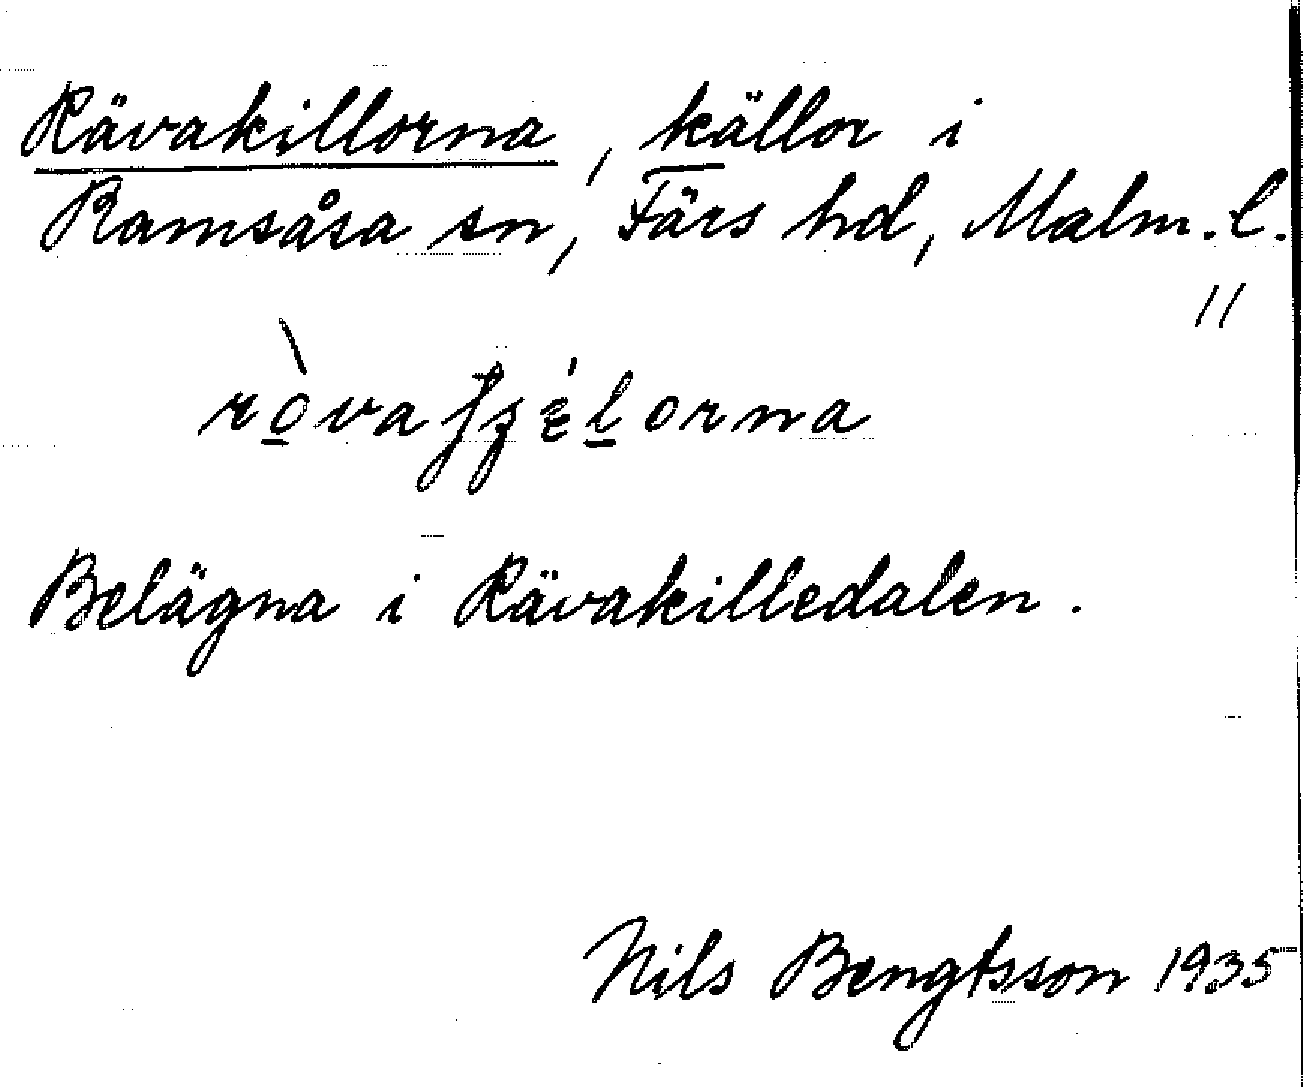 Rävakillorna, källor i
Ramsåsa sn, Färs hd, Malm. l.
Belägna i Rävakilledalen.
Nils Bengtsson 1935